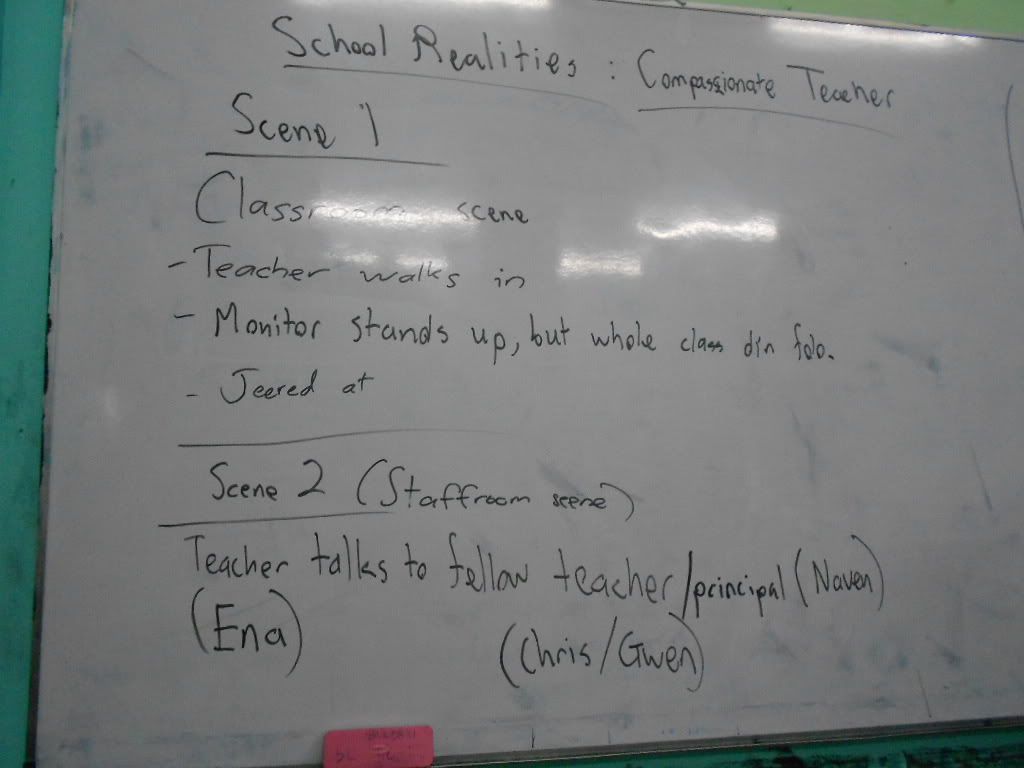 School Realities : Compassionate Teacher
Scene 1
Classroom scene
- Teacher walks in
- Monitor stands up, but whole class din folo.
- Jeered at
Scene 2 (Staffroom scene)
Teacher talks to fellow teacher/principal (Naven)
(Ena) (Chris/Gwen)